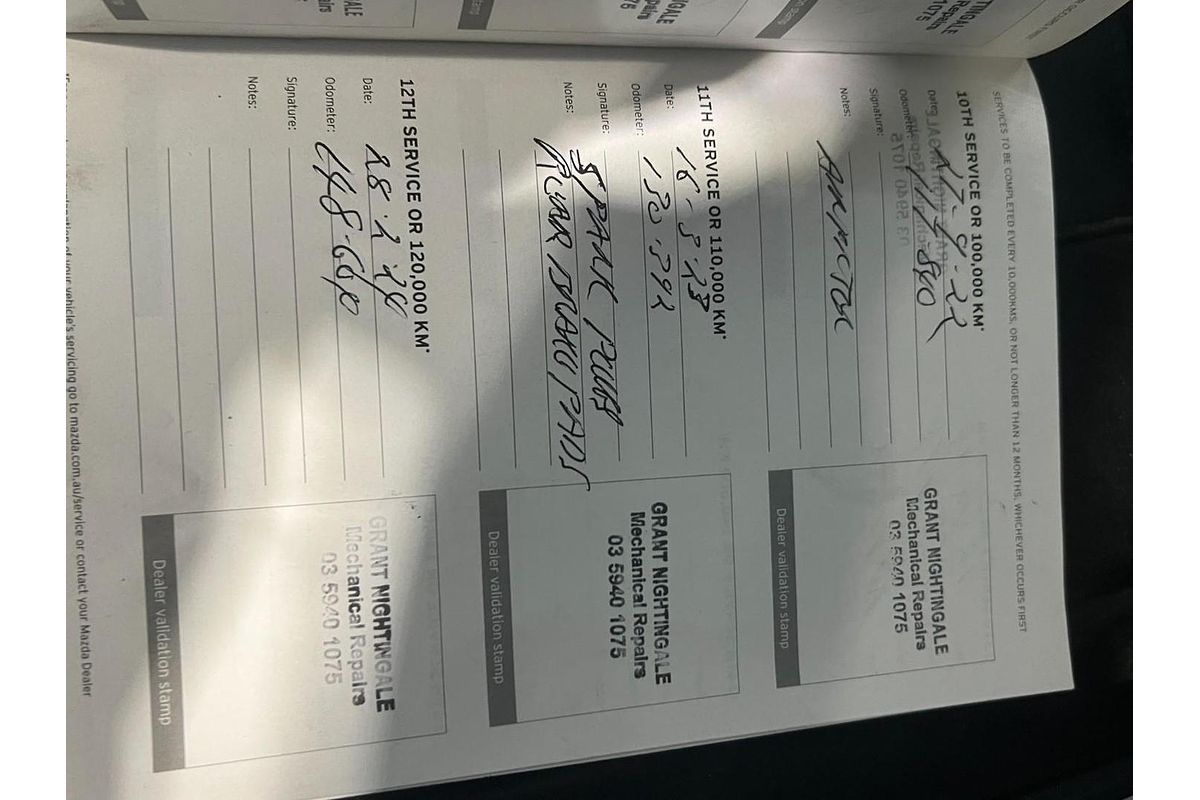 SERVICES TO BE COMPLETED EVERY 10,000KMS, OR NOT LONGER THAN 12 MONTHS, WHICHEVER OCCURS FIRST
10TH SERVICE OR 100,000 KM*
Date:
Odometer:
Signature:
Notes:
GRANT NIGHTINGALE
Mechanical Repairs
03 5940 1075
Dealer validation stamp
11TH SERVICE OR 110,000 KM*
Date: 16-3-23
Odometer: 130-392
Signature:
SPARK PLUGS
Notes: REAR BRAKE PADS
GRANT NIGHTINGALE
Mechanical Repairs
03 5940 1075
Dealer validation stamp
12TH SERVICE OR 120,000 KM*
Date: 28-2-24
Odometer: 148-660
Signature:
Notes:
GRANT NIGHTINGALE
Mechanical Repairs
03 5940 1075
Dealer validation stamp
of your vehicle's servicing go to mazda.com.au/service or contact your Mazda Dealer